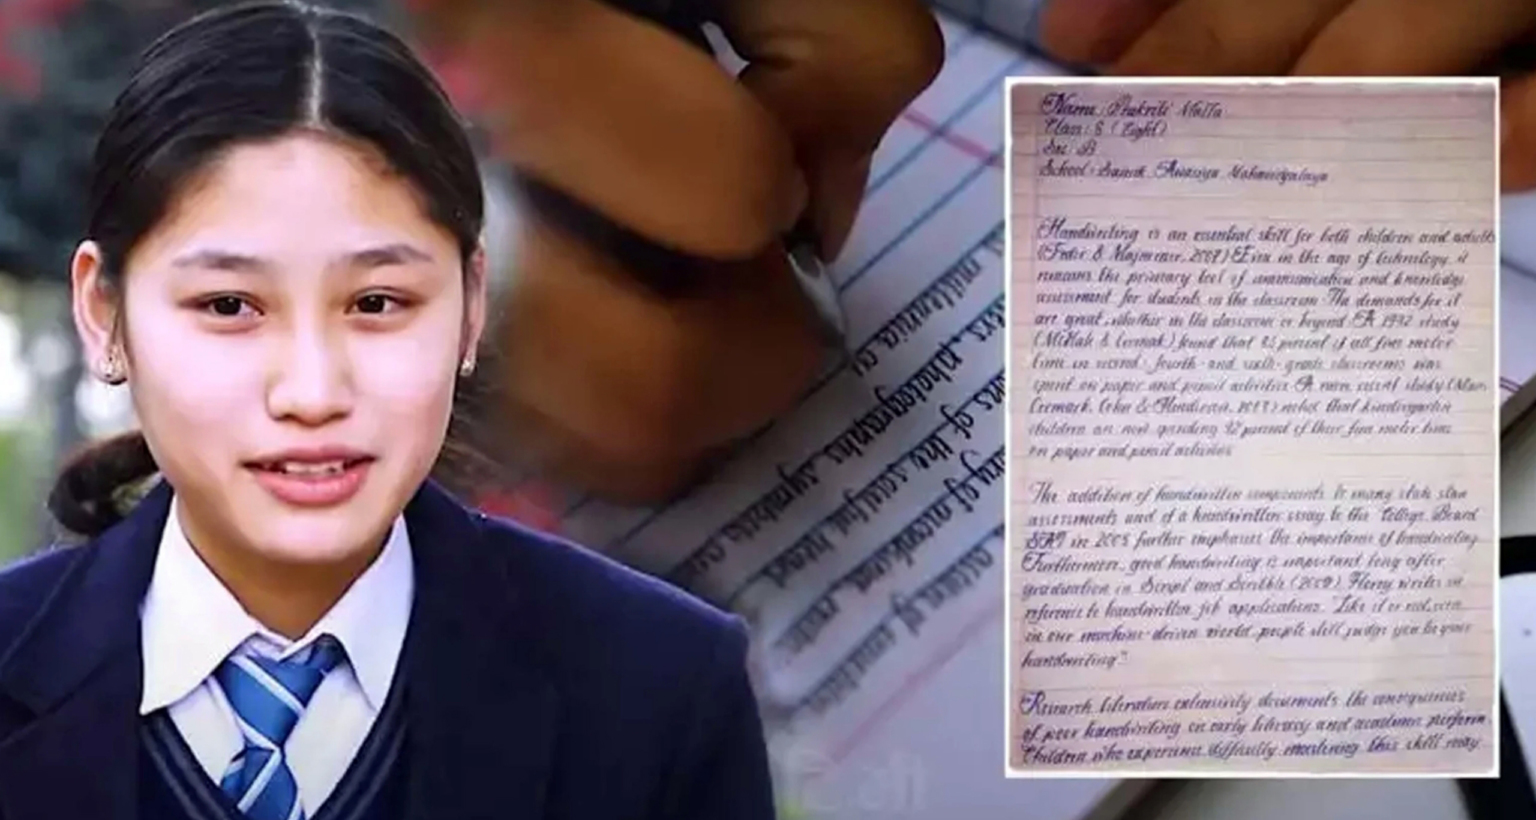 Name: Prakriti Malla
Class: 8 (Eight)
Sec: B
School: Sainik Awasiya Mahavidyalaya
Handwriting is an essential skill for both children and adults
(Feder & Majnemer, 2007) Even in the age of technology, it
remains the primary tool of communication and knowledge
assessment for students in the classroom. The demands for it
are great, whether in the classroom or beyond. A 1992 study
(McHale & Cermak) found that 85 percent of all fine motor
time in second- fourth- and sixth-grade classrooms was
spent on paper and pencil activities. A more recent study (Marr,
Cermak, Cohn & Henderson, 2003) noted that kindergarten
children are now spending 42 percent of their fine motor time
on paper and pencil activities
The addition of handwritten components to many state stan
assessments and of a handwritten essay to the College Board
SAT in 2005 further emphasises the importance of handwriting
Furthermore, good handwriting is important long after
graduation in Script and Scribble (2009) Florey writes in
reference to handwritten job applications, "Like it or not, even
in our machine-driven world, people still judge you by your
handwriting"
Research literature extensively documents the consequences
of poor handwriting on early literacy and academic perform
Children who experience difficulty mastering this skill may
photographs symbols
of the soulful heart